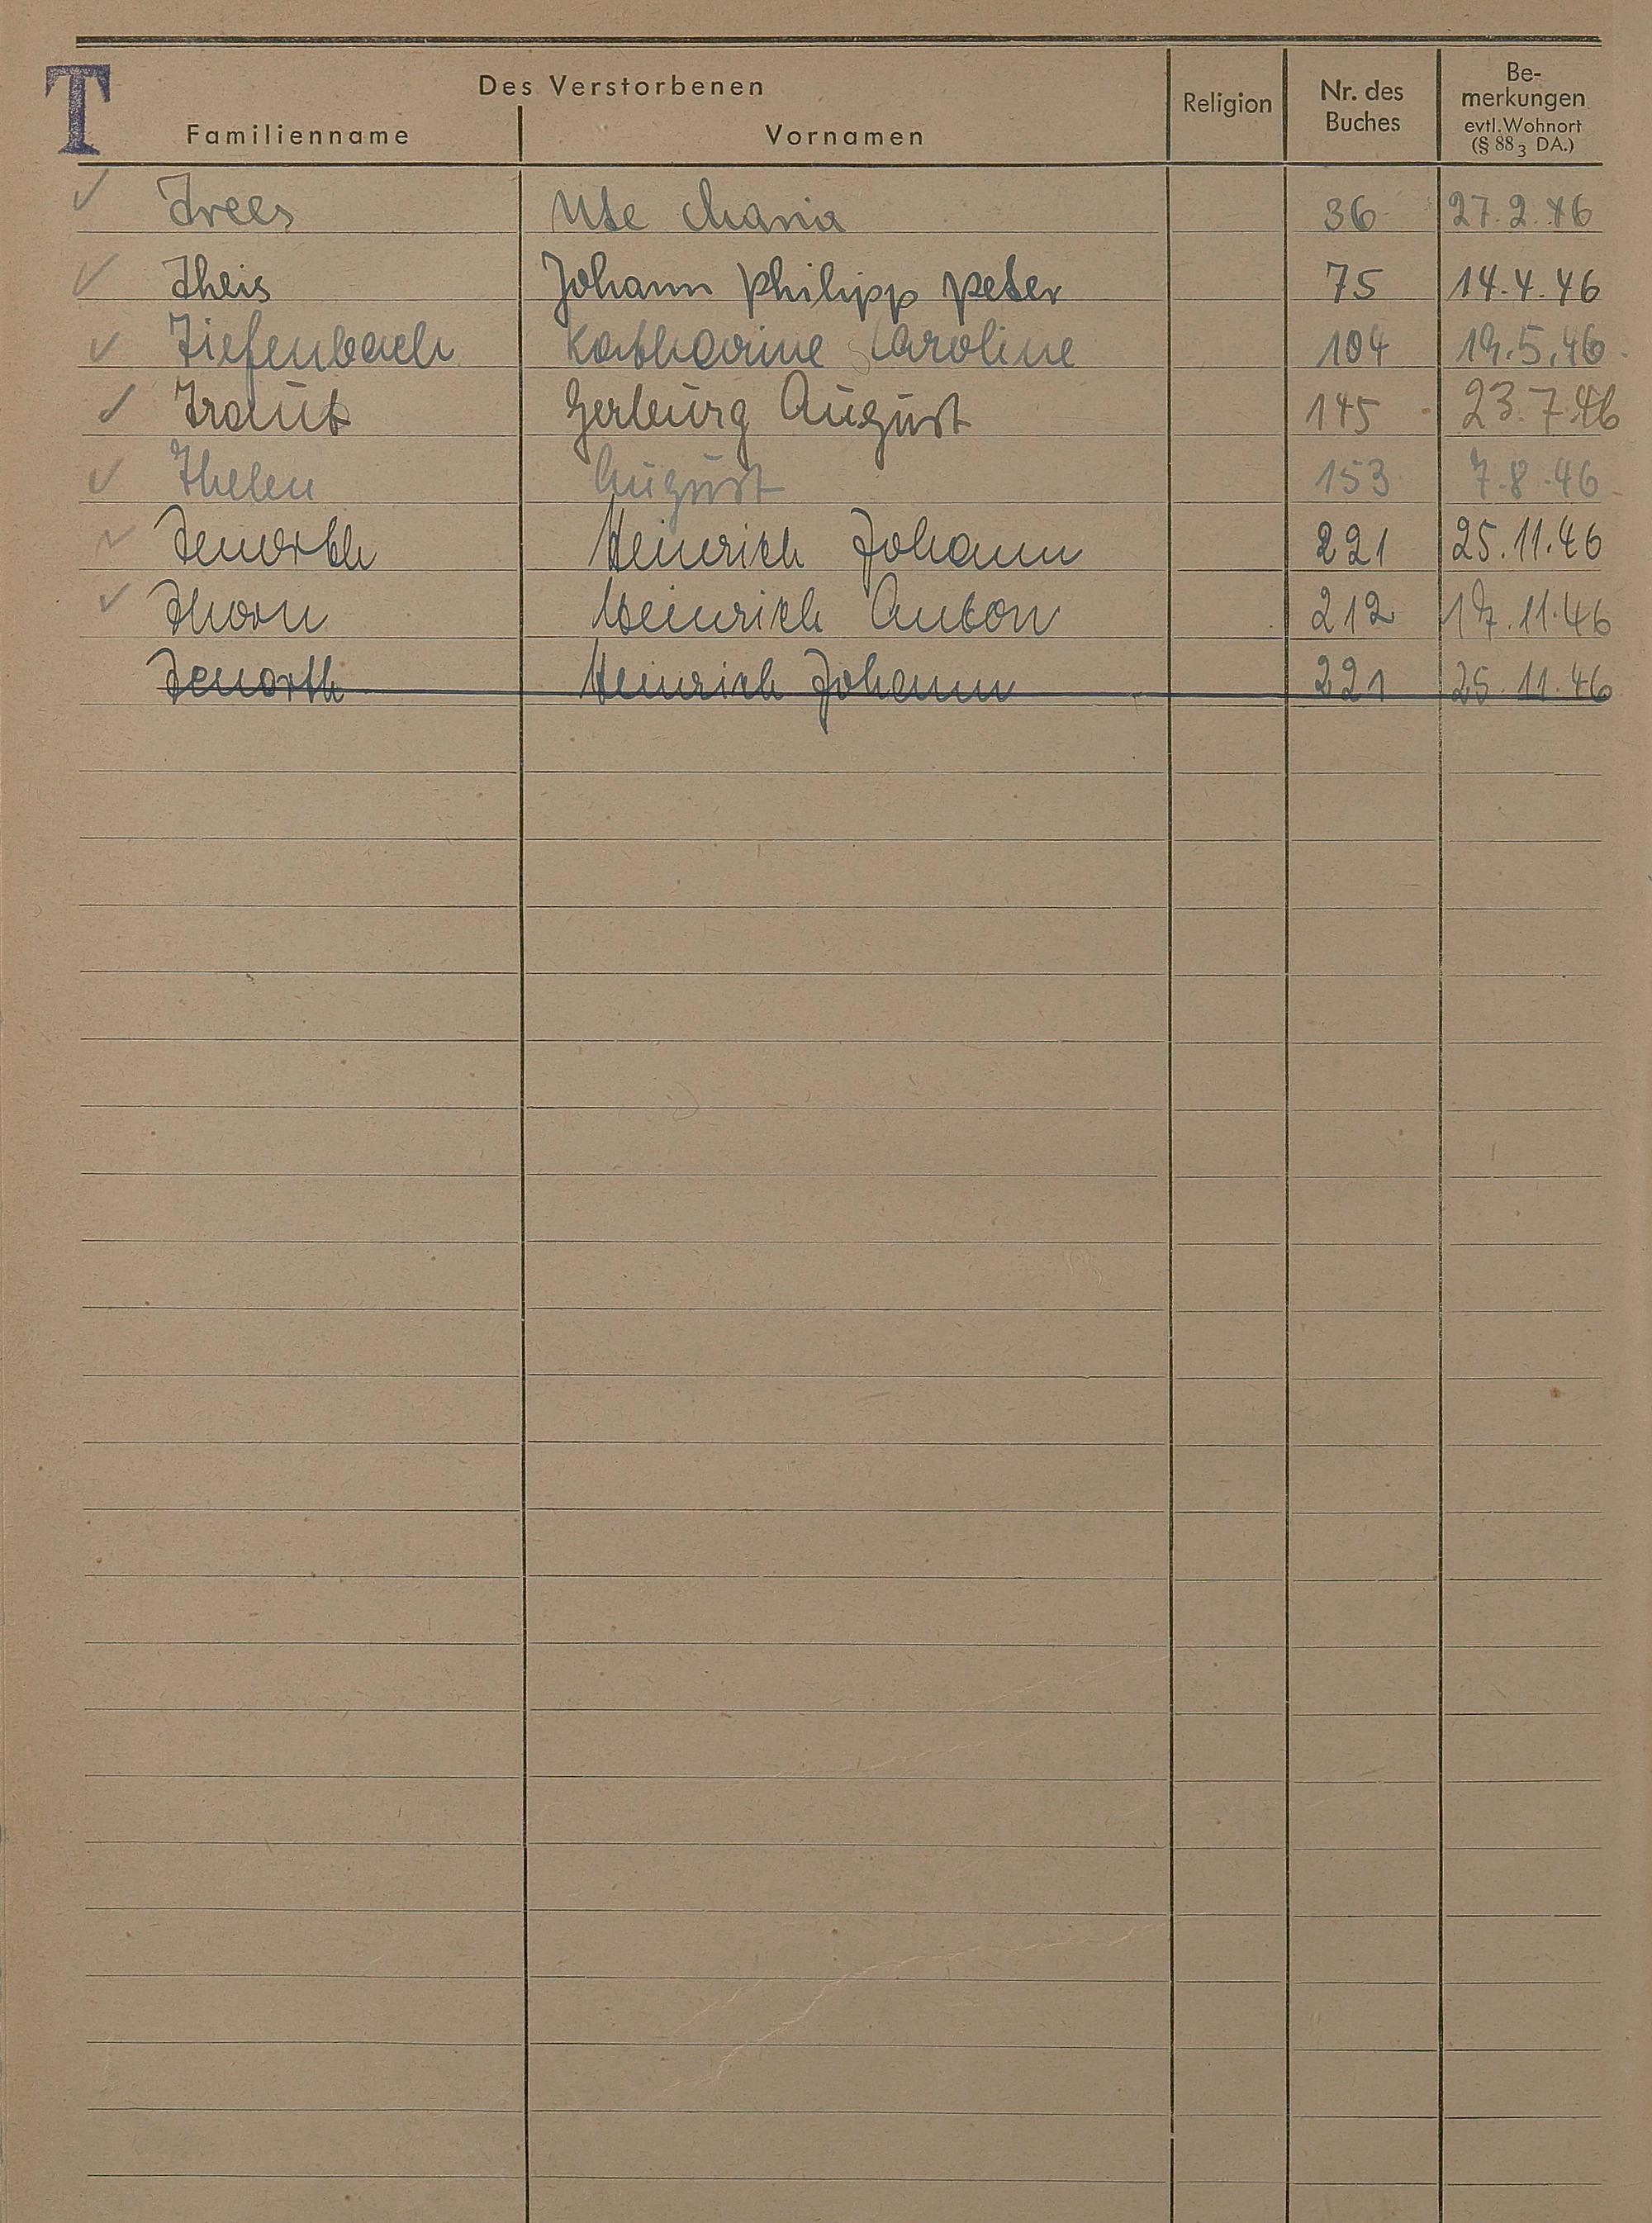 T
Des Verstorbenen
Familienname Vornamen Religion Nr. des Buches Be-merkungen evtl. Wohnort (§ 88 3 DA.)
✓ Trees Ute Maria 36 27.2.46
✓ Theis Johann Philipp Peter 75 14.4.46
✓ Tiefenbach Katharine Karoline 104 19.5.46
✓ Traut Gerburg August 145 23.7.46
✓ Thelen August 153 7.8.46
✓ Tenorth Heinrich Johann 221 25.11.46
✓ Thorn Heinrich Anton 212 17.11.46
Tenorth Heinrich Johann 221 25.11.46